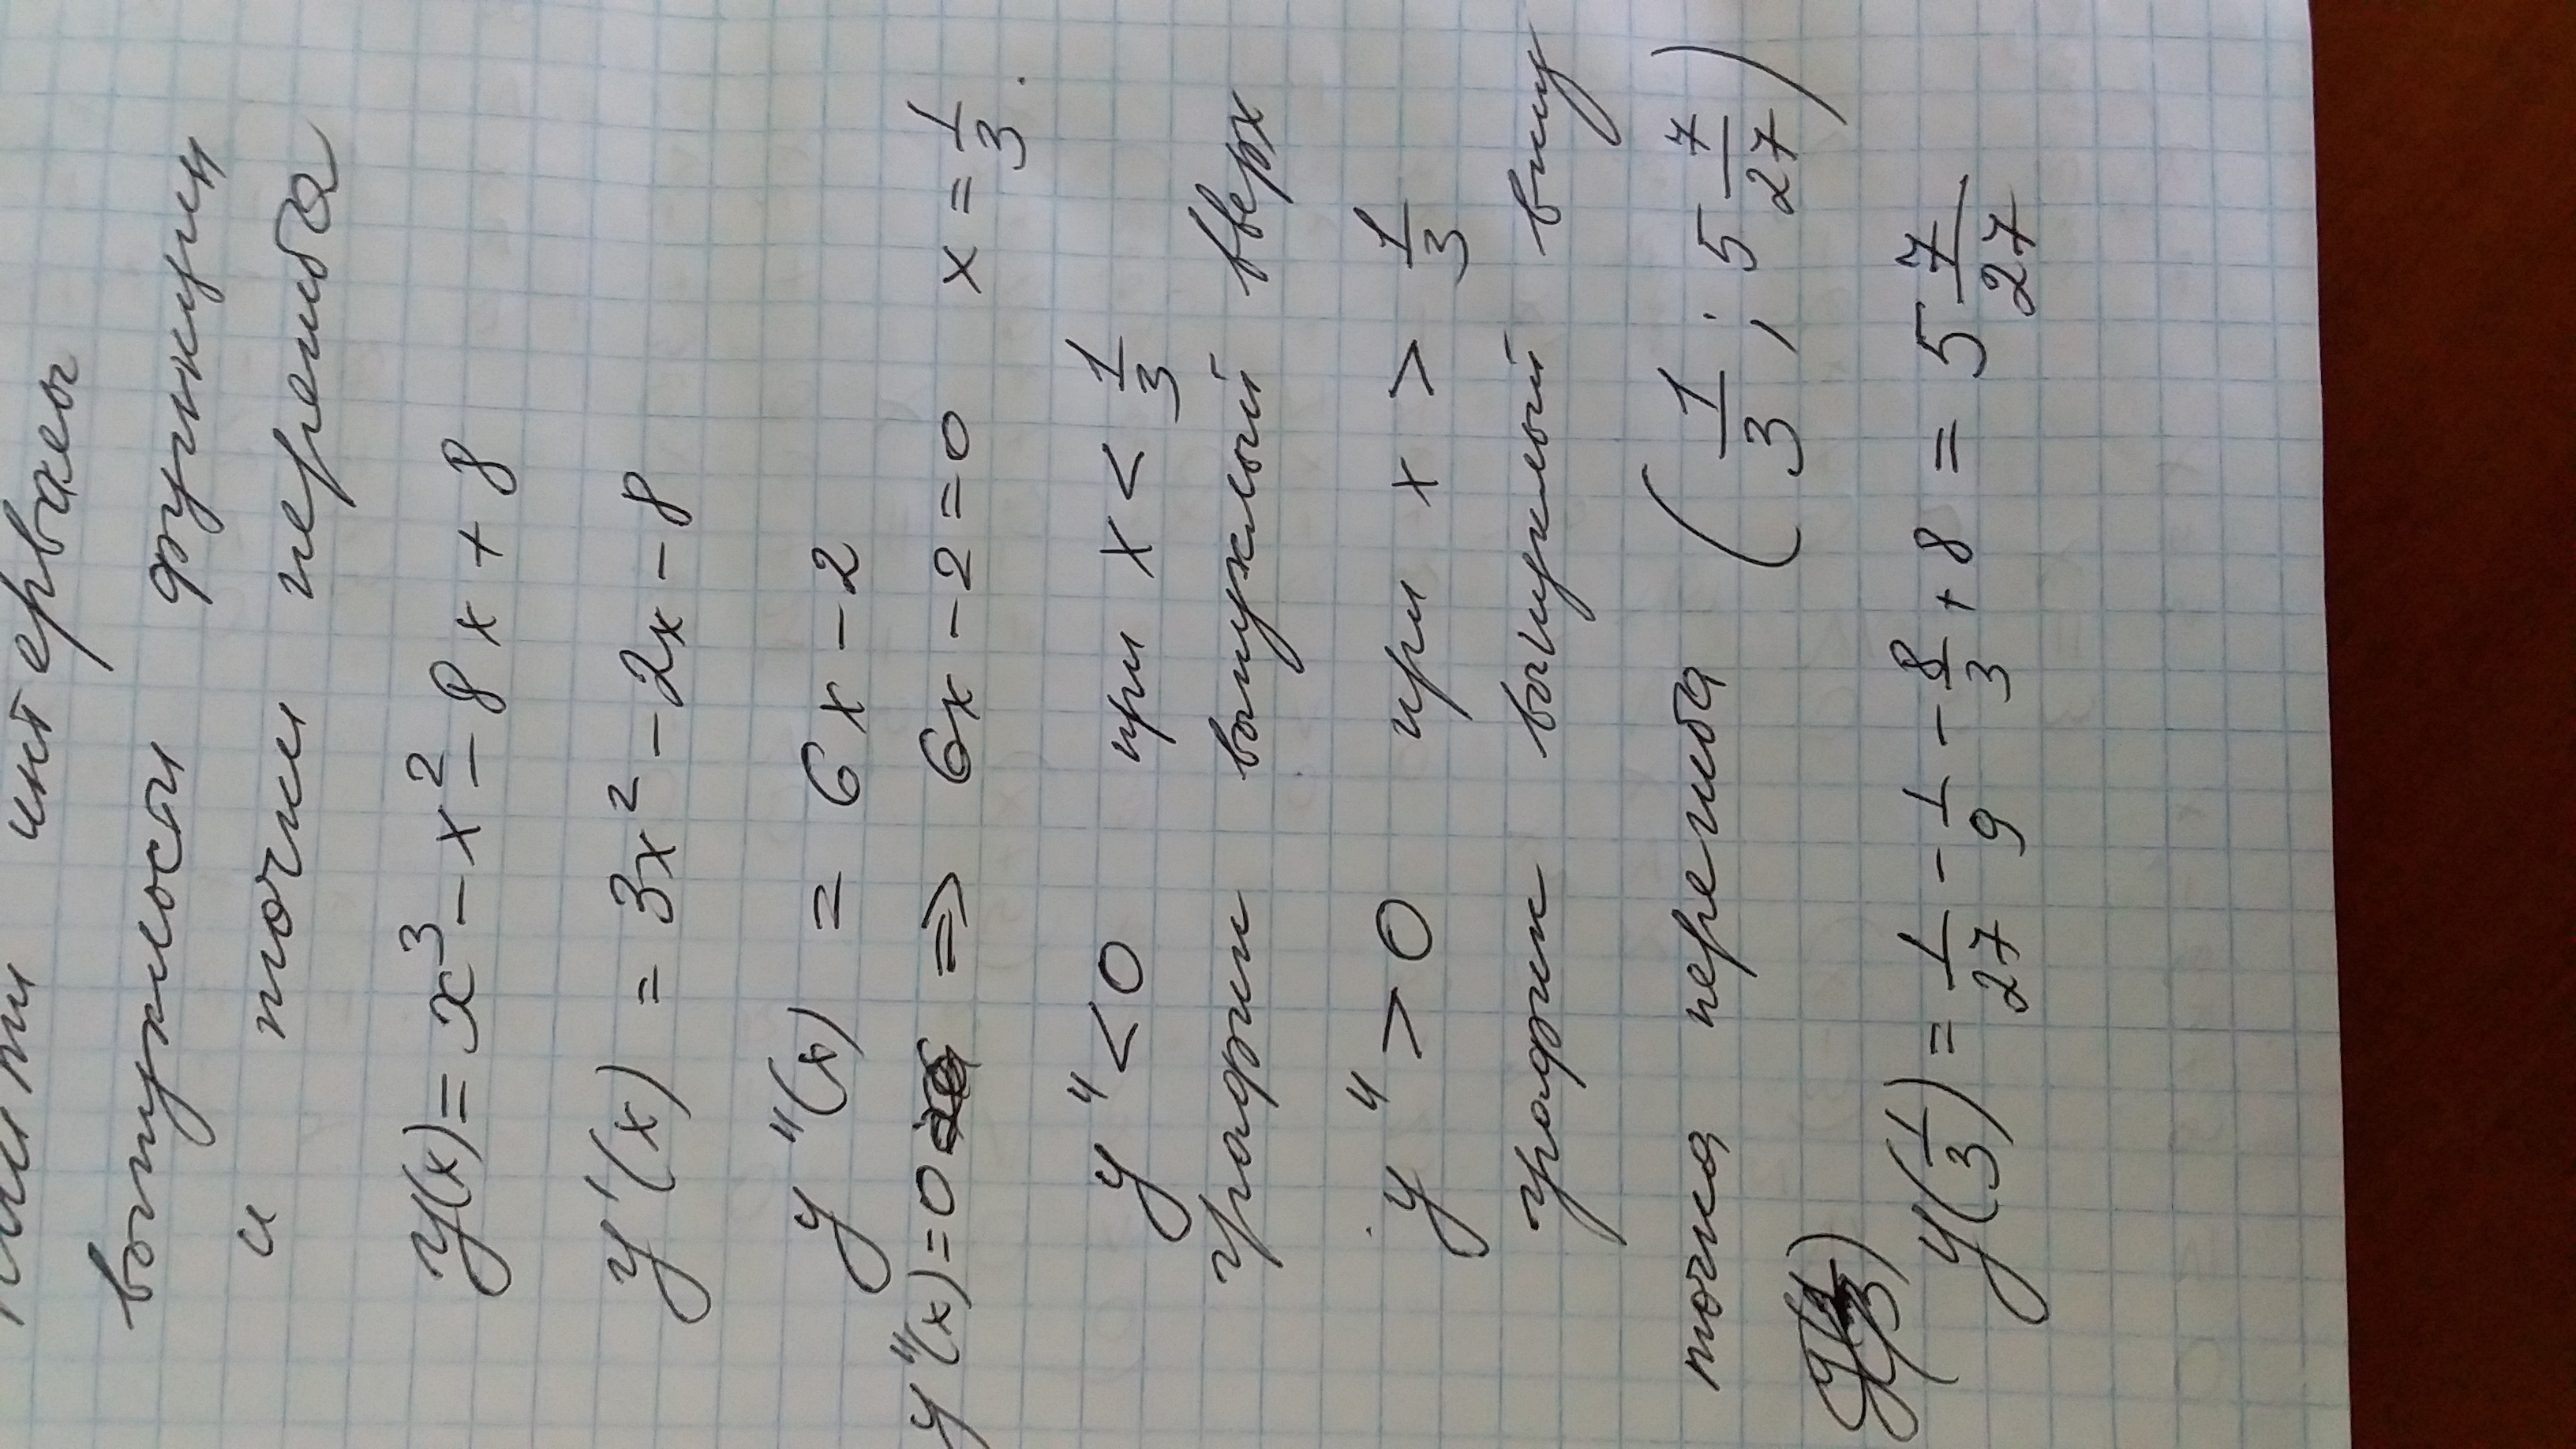 найти интервалы
выпуклости функции
и точки перегиба
y(x) = x³ - x² - 8x + 8
y'(x) = 3x² - 2x - 8
y"(x) = 6x - 2
y"(x) = 0 => 6x - 2 = 0 x = 1/3.
y" < 0 при x < 1/3
график выпуклый вверх
y" > 0 при x > 1/3
график выпуклый вниз
точка перегиба (1/3; 5 7/27)
y(1/3) = 1/27 - 1/9 - 8/3 + 8 = 5 7/27